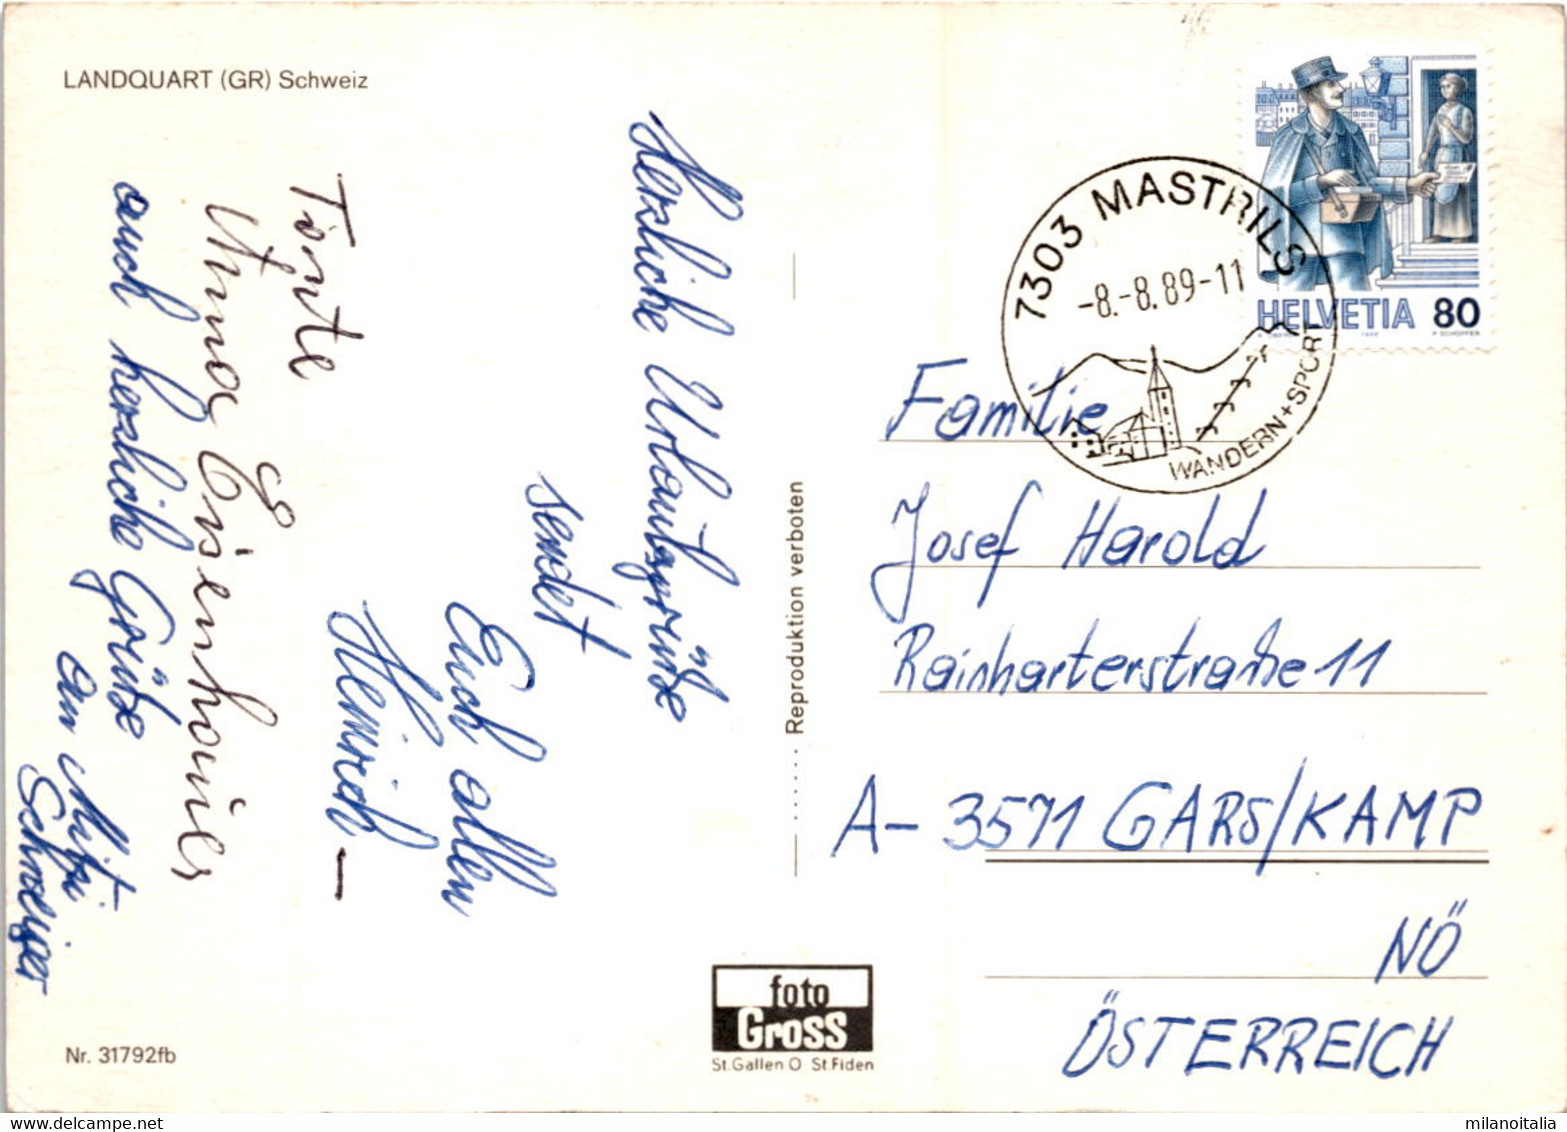 LANDQUART (GR) Schweiz
Herzliche Urlaubsgrüße
sendet
Euch allen
Heinrich –
Tante
Anna Eisenhauer
auch herzliche Grüße
an Mitzi
Schweiger
Nr. 31792fb
Reproduktion verboten
foto
Gross
St.Gallen O St.Fiden
7303 MASTRILS
-8.-8.89-11
WANDERN+SPORT
HELVETIA 80
P. SCHOPFER
Familie
Josef Harold
Rainharterstraße 11
A- 3571 GARS/KAMP
NÖ
ÖSTERREICH
milanoitalia